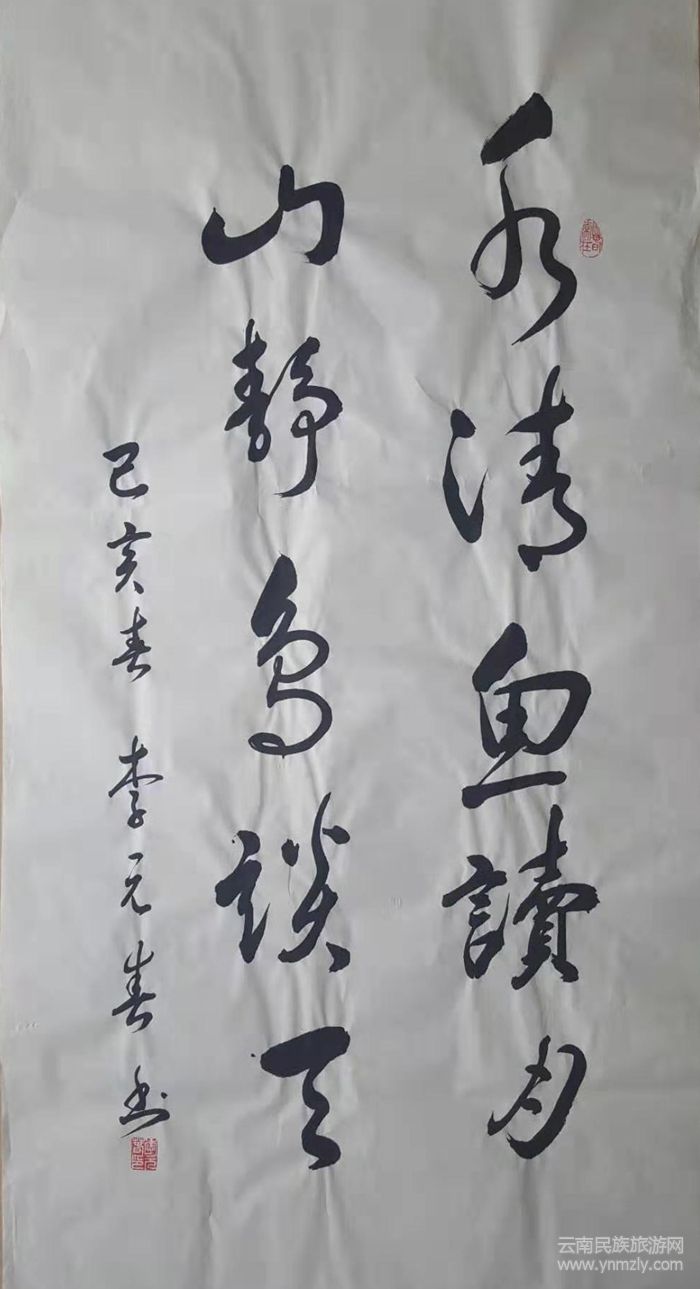 水清魚讀月
山靜鳥談天
己亥春 李元春書
云南民族旅游网
www.ynmzly.com